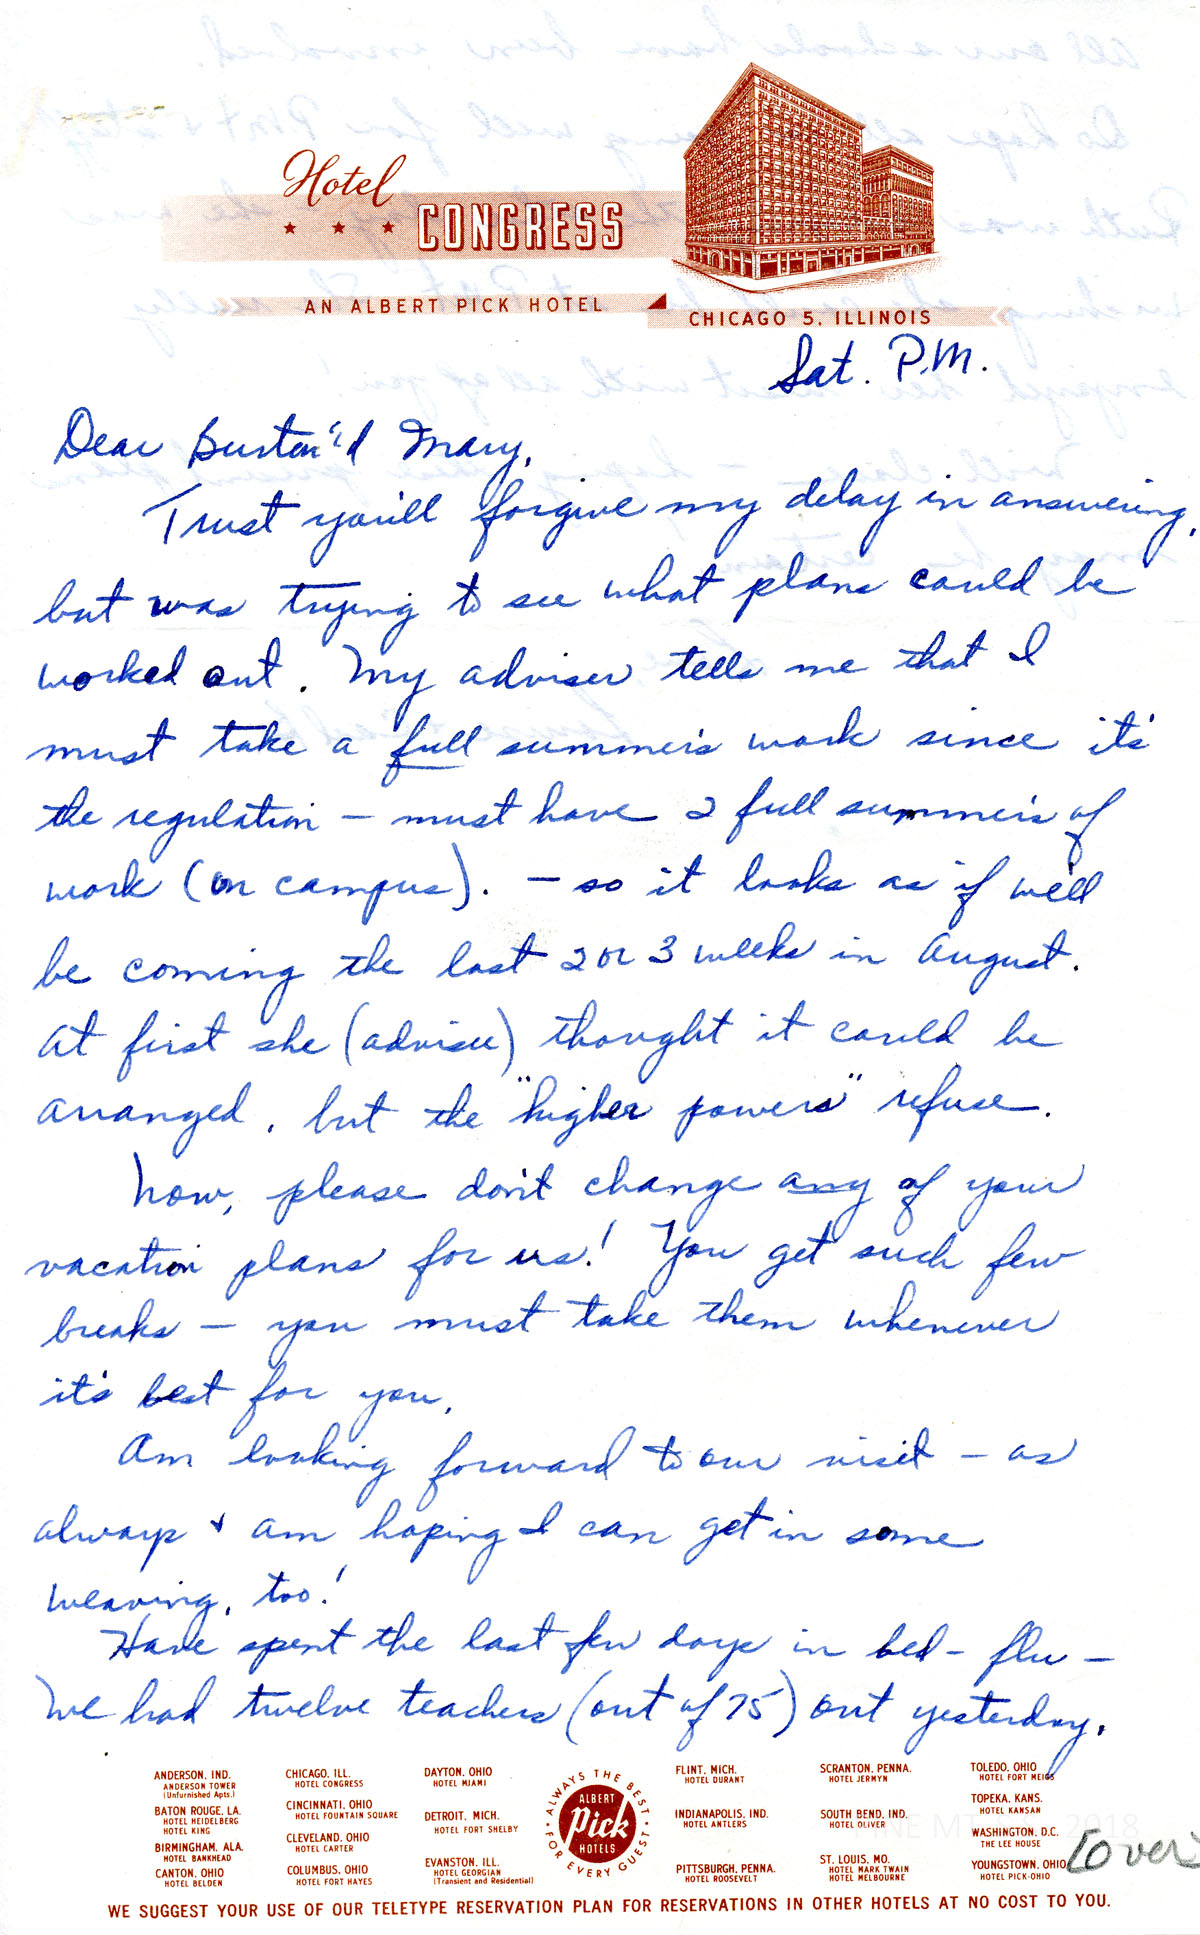 Hotel
★ ★ ★ CONGRESS
AN ALBERT PICK HOTEL
CHICAGO 5, ILLINOIS
Sat. P.M.
Dear Burton 'd Mary,
Trust you'll forgive my delay in answering,
but was trying to see what plans could be
worked out. My adviser tells me that I
must take a full summer's work since it's
the regulation – must have 2 full summer's of
work (on campus). – so it looks as if we'll
be coming the last 2 or 3 weeks in August.
At first she (adviser) thought it could be
arranged, but the "higher powers" refuse.
Now, please don't change any of your
vacation plans for us! You get such few
breaks – you must take them whenever
it's best for you.
Am looking forward to our visit – as
always & am hoping I can get in some
weaving, too!
Have spent the last few days in bed – flu –
We had twelve teachers (out of 75) out yesterday.
ANDERSON, IND.
ANDERSON TOWER
(Unfurnished Apts.)
BATON ROUGE, LA.
HOTEL HEIDELBERG
HOTEL KING
BIRMINGHAM, ALA.
HOTEL BANKHEAD
CANTON, OHIO
HOTEL BELDEN
CHICAGO, ILL.
HOTEL CONGRESS
CINCINNATI, OHIO
HOTEL FOUNTAIN SQUARE
CLEVELAND, OHIO
HOTEL CARTER
COLUMBUS, OHIO
HOTEL FORT HAYES
DAYTON, OHIO
HOTEL MIAMI
DETROIT, MICH.
HOTEL FORT SHELBY
EVANSTON, ILL.
HOTEL GEORGIAN
(Transient and Residential)
ALWAYS THE BEST
ALBERT
Pick
HOTELS
FOR EVERY GUEST
FLINT, MICH.
HOTEL DURANT
INDIANAPOLIS, IND.
HOTEL ANTLERS
PITTSBURGH, PENNA.
HOTEL ROOSEVELT
SCRANTON, PENNA.
HOTEL JERMYN
SOUTH BEND, IND.
HOTEL OLIVER
ST. LOUIS, MO.
HOTEL MARK TWAIN
HOTEL MELBOURNE
TOLEDO, OHIO
HOTEL FORT MEIGS
TOPEKA, KANS.
HOTEL KANSAN
WASHINGTON, D.C.
THE LEE HOUSE
YOUNGSTOWN, OHIO
HOTEL PICK-OHIO
2018
(over)
WE SUGGEST YOUR USE OF OUR TELETYPE RESERVATION PLAN FOR RESERVATIONS IN OTHER HOTELS AT NO COST TO YOU.